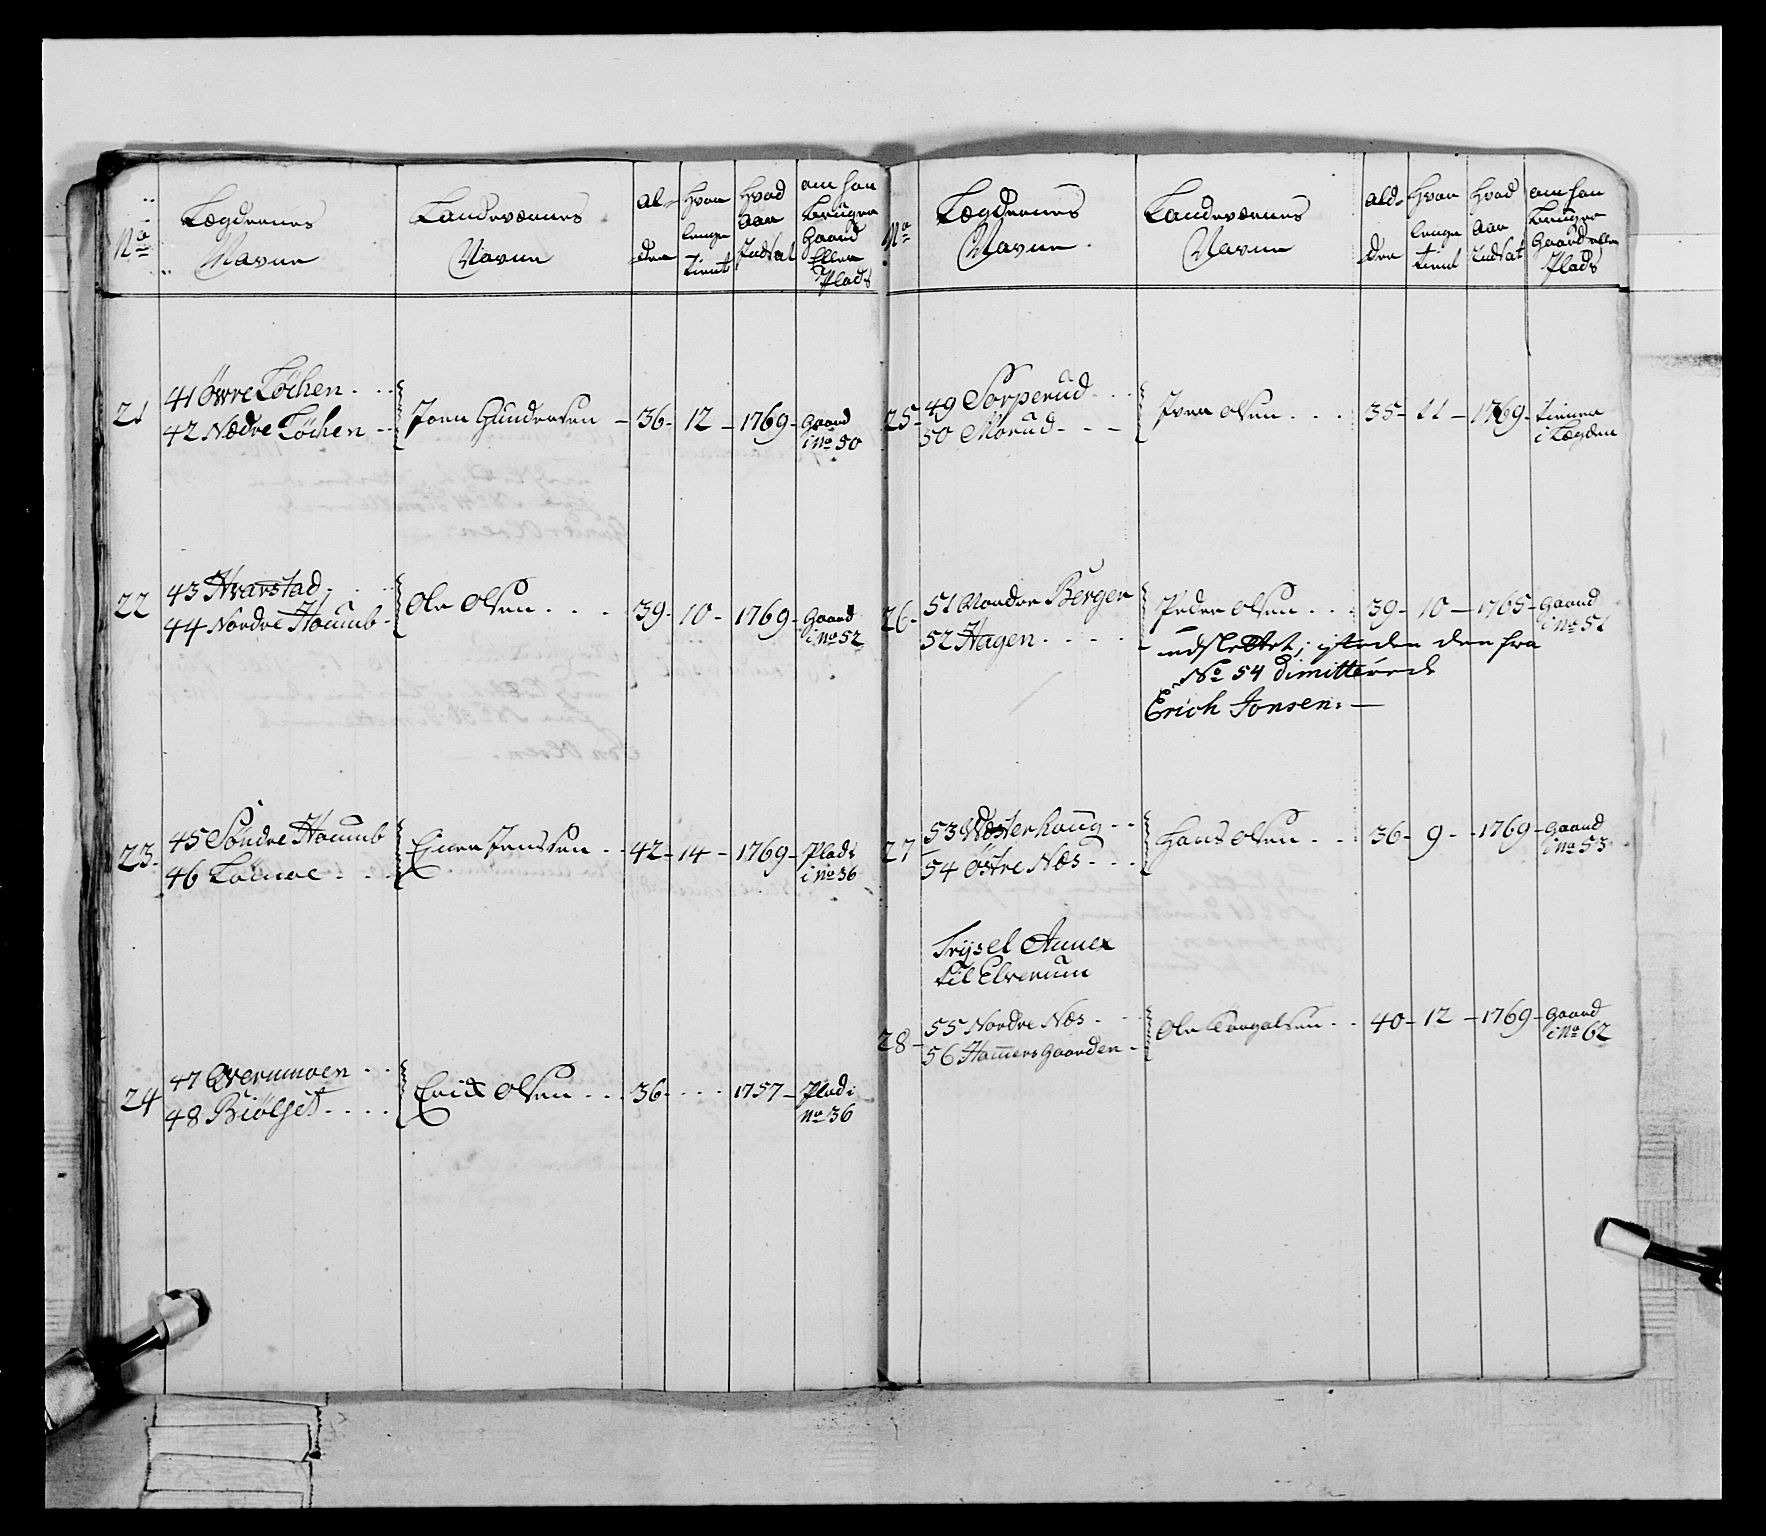 No
Lægdernes
Navne
Landeværnes
Navne
Al-
der
hvor
lenge
tient
hvad
Aar
Indsat
om han
bruger
Gaard
Eller
Plads
21
41 Øvre Löchen
42 Nædre Löchen
Joen Gundersen
36 - 12 - 1769 - Gaard
i No 50
22
43 Hvarstad
44 Nordre Houmb
Ole Olsen
39 - 10 - 1769 - Gaard
i No 52
23
45 Söndre Houmb
46
Einer Jenssen
42 - 14 - 1769 - Plads
i No 36
24
47 Qvernmoen
48 Biölset
Erich Olsen
36 - 1757 - Plad i
No 36
No
Lægdernes
Navne
Landeværnes
Navne
Ald-
der
hvor
lenge
tient
hvad
Aar
Indsat
om han
bruger
Gaard eller
Plads
25
49 Sorperud
50 Morud
Iver Olsen
35 - 11 - 1769 - tiener
i Lægden
26
51 Nordre Berger
52 Hagen
Peder Olsen
39 - 10 - 1765 - Gaard
i No 51
udslettet, isteden den fra
No 54 dimitterede
Erich Jonsen
27
53 Westerhaug
54 Østre Næs
Hans Olsen
36 - 9 - 1769 - Gaard
i No 53
Trysel Annex
til Elverum
28
55 Nordre Næs
56 Hammersgaarden
Ole
40 - 12 - 1769 - Gaard
i No 62